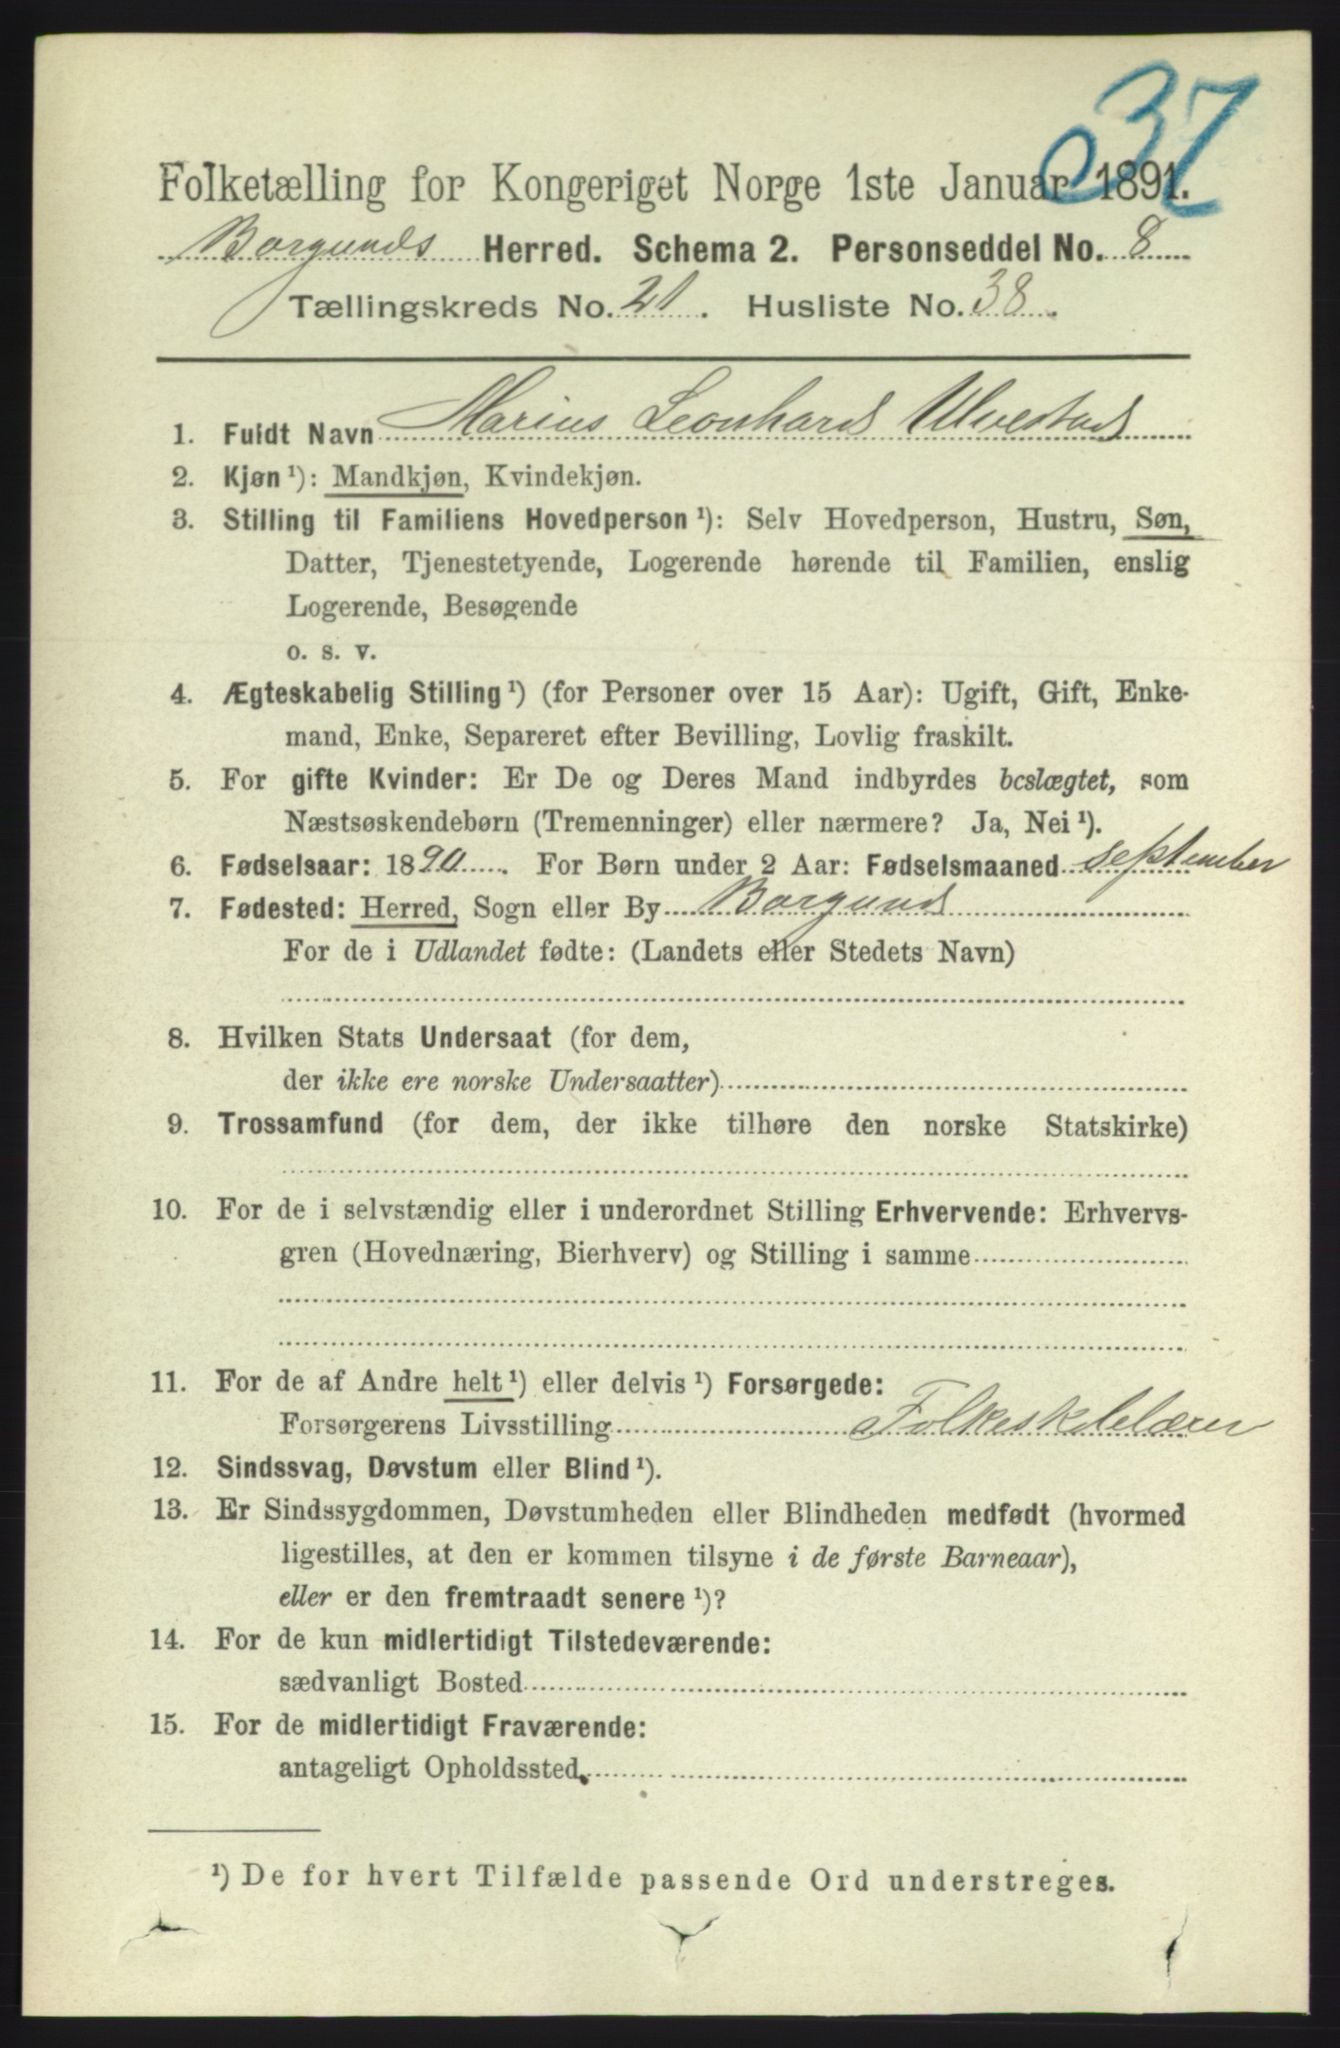 37
Folketælling for Kongeriget Norge 1ste Januar 1891.
Borgunds Herred. Schema 2. Personseddel No. 8
Tællingskreds No. 21. Husliste No. 38.
1. Fuldt Navn Marius Leonhard Ulvestad
2. Kjøn¹): Mandkjøn, Kvindekjøn.
3. Stilling til Familiens Hovedperson¹): Selv Hovedperson, Hustru, Søn,
Datter, Tjenestetyende, Logerende hørende til Familien, enslig
Logerende, Besøgende
o. s. v.
4. Ægteskabelig Stilling¹) (for Personer over 15 Aar): Ugift, Gift, Enke-
mand, Enke, Separeret efter Bevilling, Lovlig fraskilt.
5. For gifte Kvinder: Er De og Deres Mand indbyrdes beslægtet, som
Næstsøskendebørn (Tremenninger) eller nærmere? Ja, Nei¹).
6. Fødselsaar: 1890. For Børn under 2 Aar: Fødselsmaaned september
7. Fødested: Herred, Sogn eller By Borgund
For de i Udlandet fødte: (Landets eller Stedets Navn)
8. Hvilken Stats Undersaat (for dem,
der ikke ere norske Undersaatter)
9. Trossamfund (for dem, der ikke tilhøre den norske Statskirke)
10. For de i selvstændig eller i underordnet Stilling Erhvervende: Erhvervs-
gren (Hovednæring, Bierhverv) og Stilling i samme
11. For de af Andre helt¹) eller delvis¹) Forsørgede:
Forsørgerens Livsstilling Folkeskolelærer
12. Sindssvag, Døvstum eller Blind¹).
13. Er Sindssygdommen, Døvstumheden eller Blindheden medfødt (hvormed
ligestilles, at den er kommen tilsyne i de første Barneaar),
eller er den fremtraadt senere¹)?
14. For de kun midlertidigt Tilstedeværende:
sædvanligt Bosted
15. For de midlertidigt Fraværende:
antageligt Opholdssted
¹) De for hvert Tilfælde passende Ord understreges.